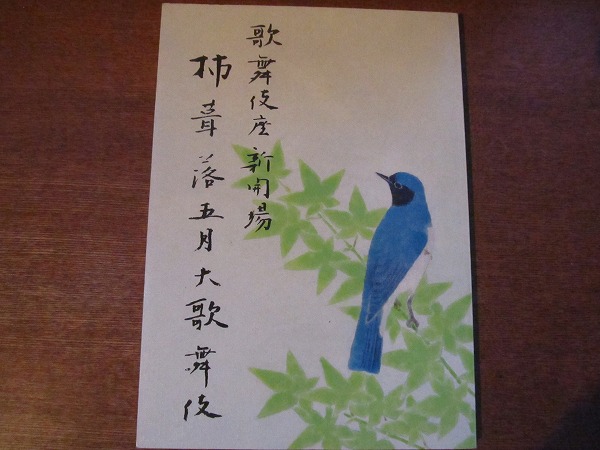 歌舞伎座新開場
杮葺落五月大歌舞伎